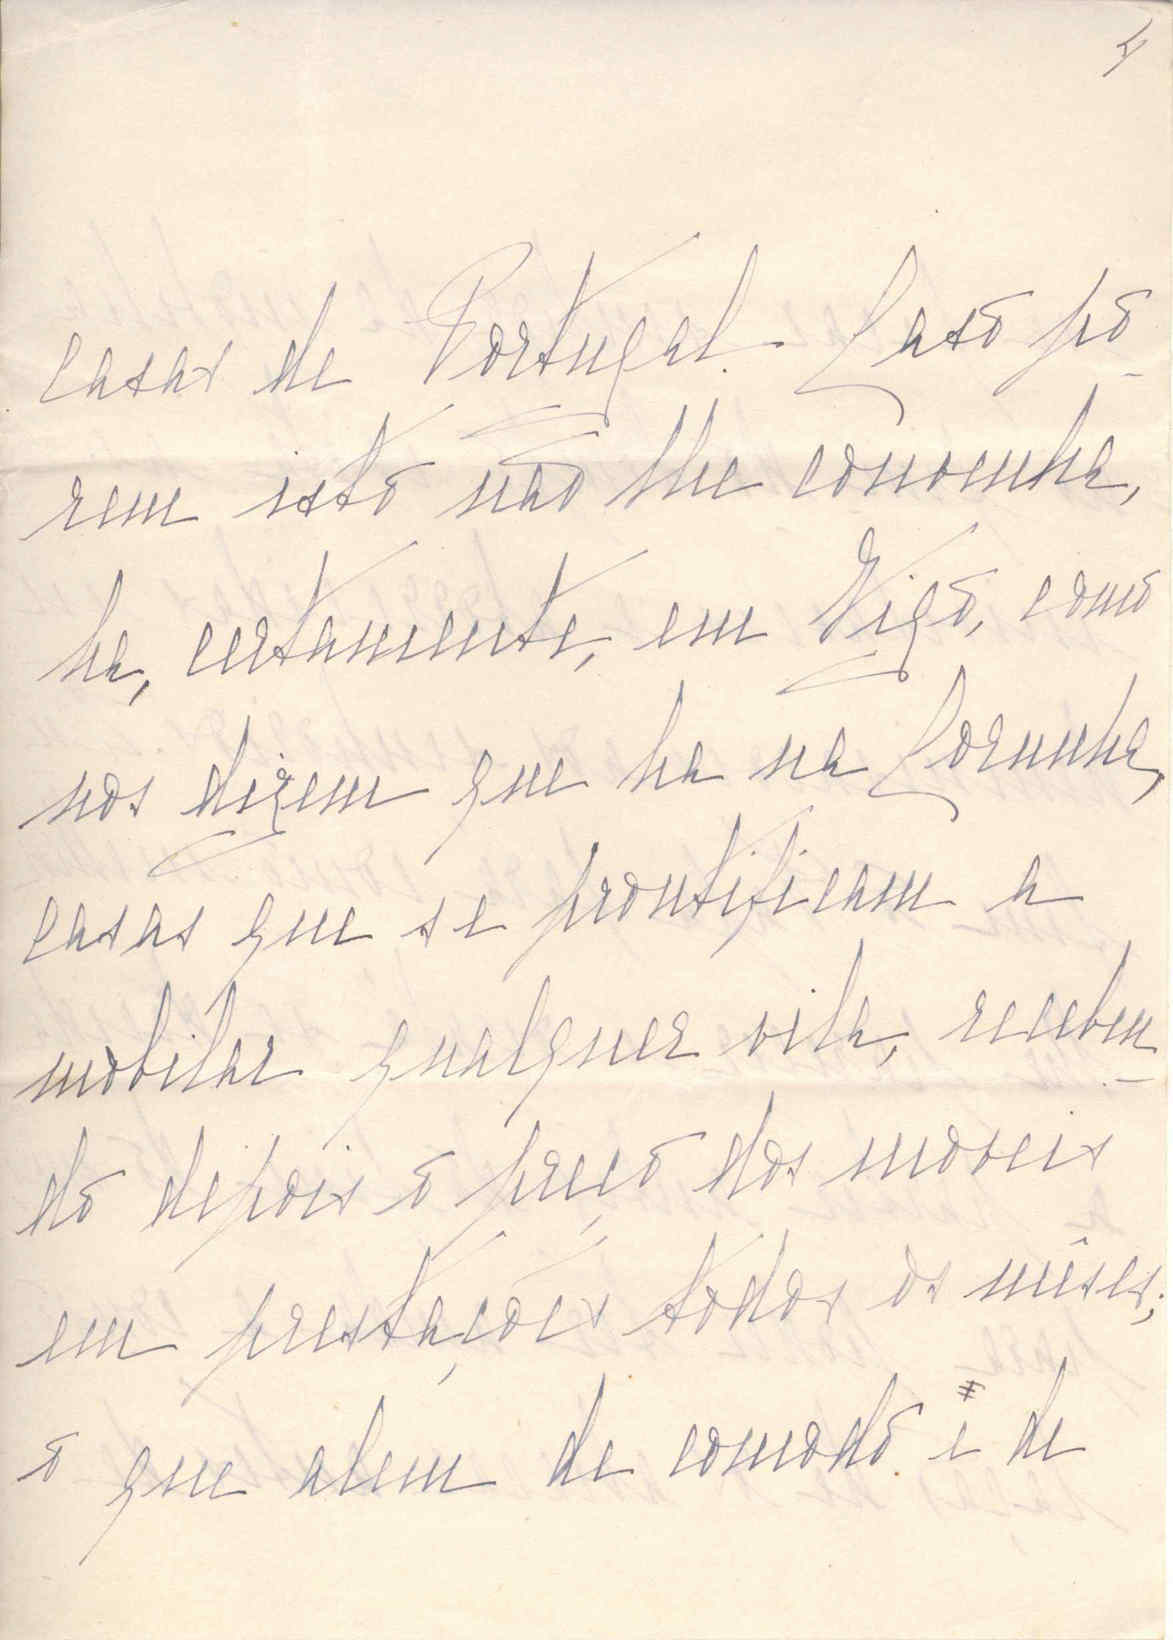 4
casas de Portugal. Caso po-
rem isto não lhe convenha,
ha, certamente, em Vigo, como
nos dizem que ha na Corunha,
casas que se prontificam a
mobilar qualquer vila, receben-
do depois o preço dos moveis
em prestações todos os mêses;
o que alem de comodo é de